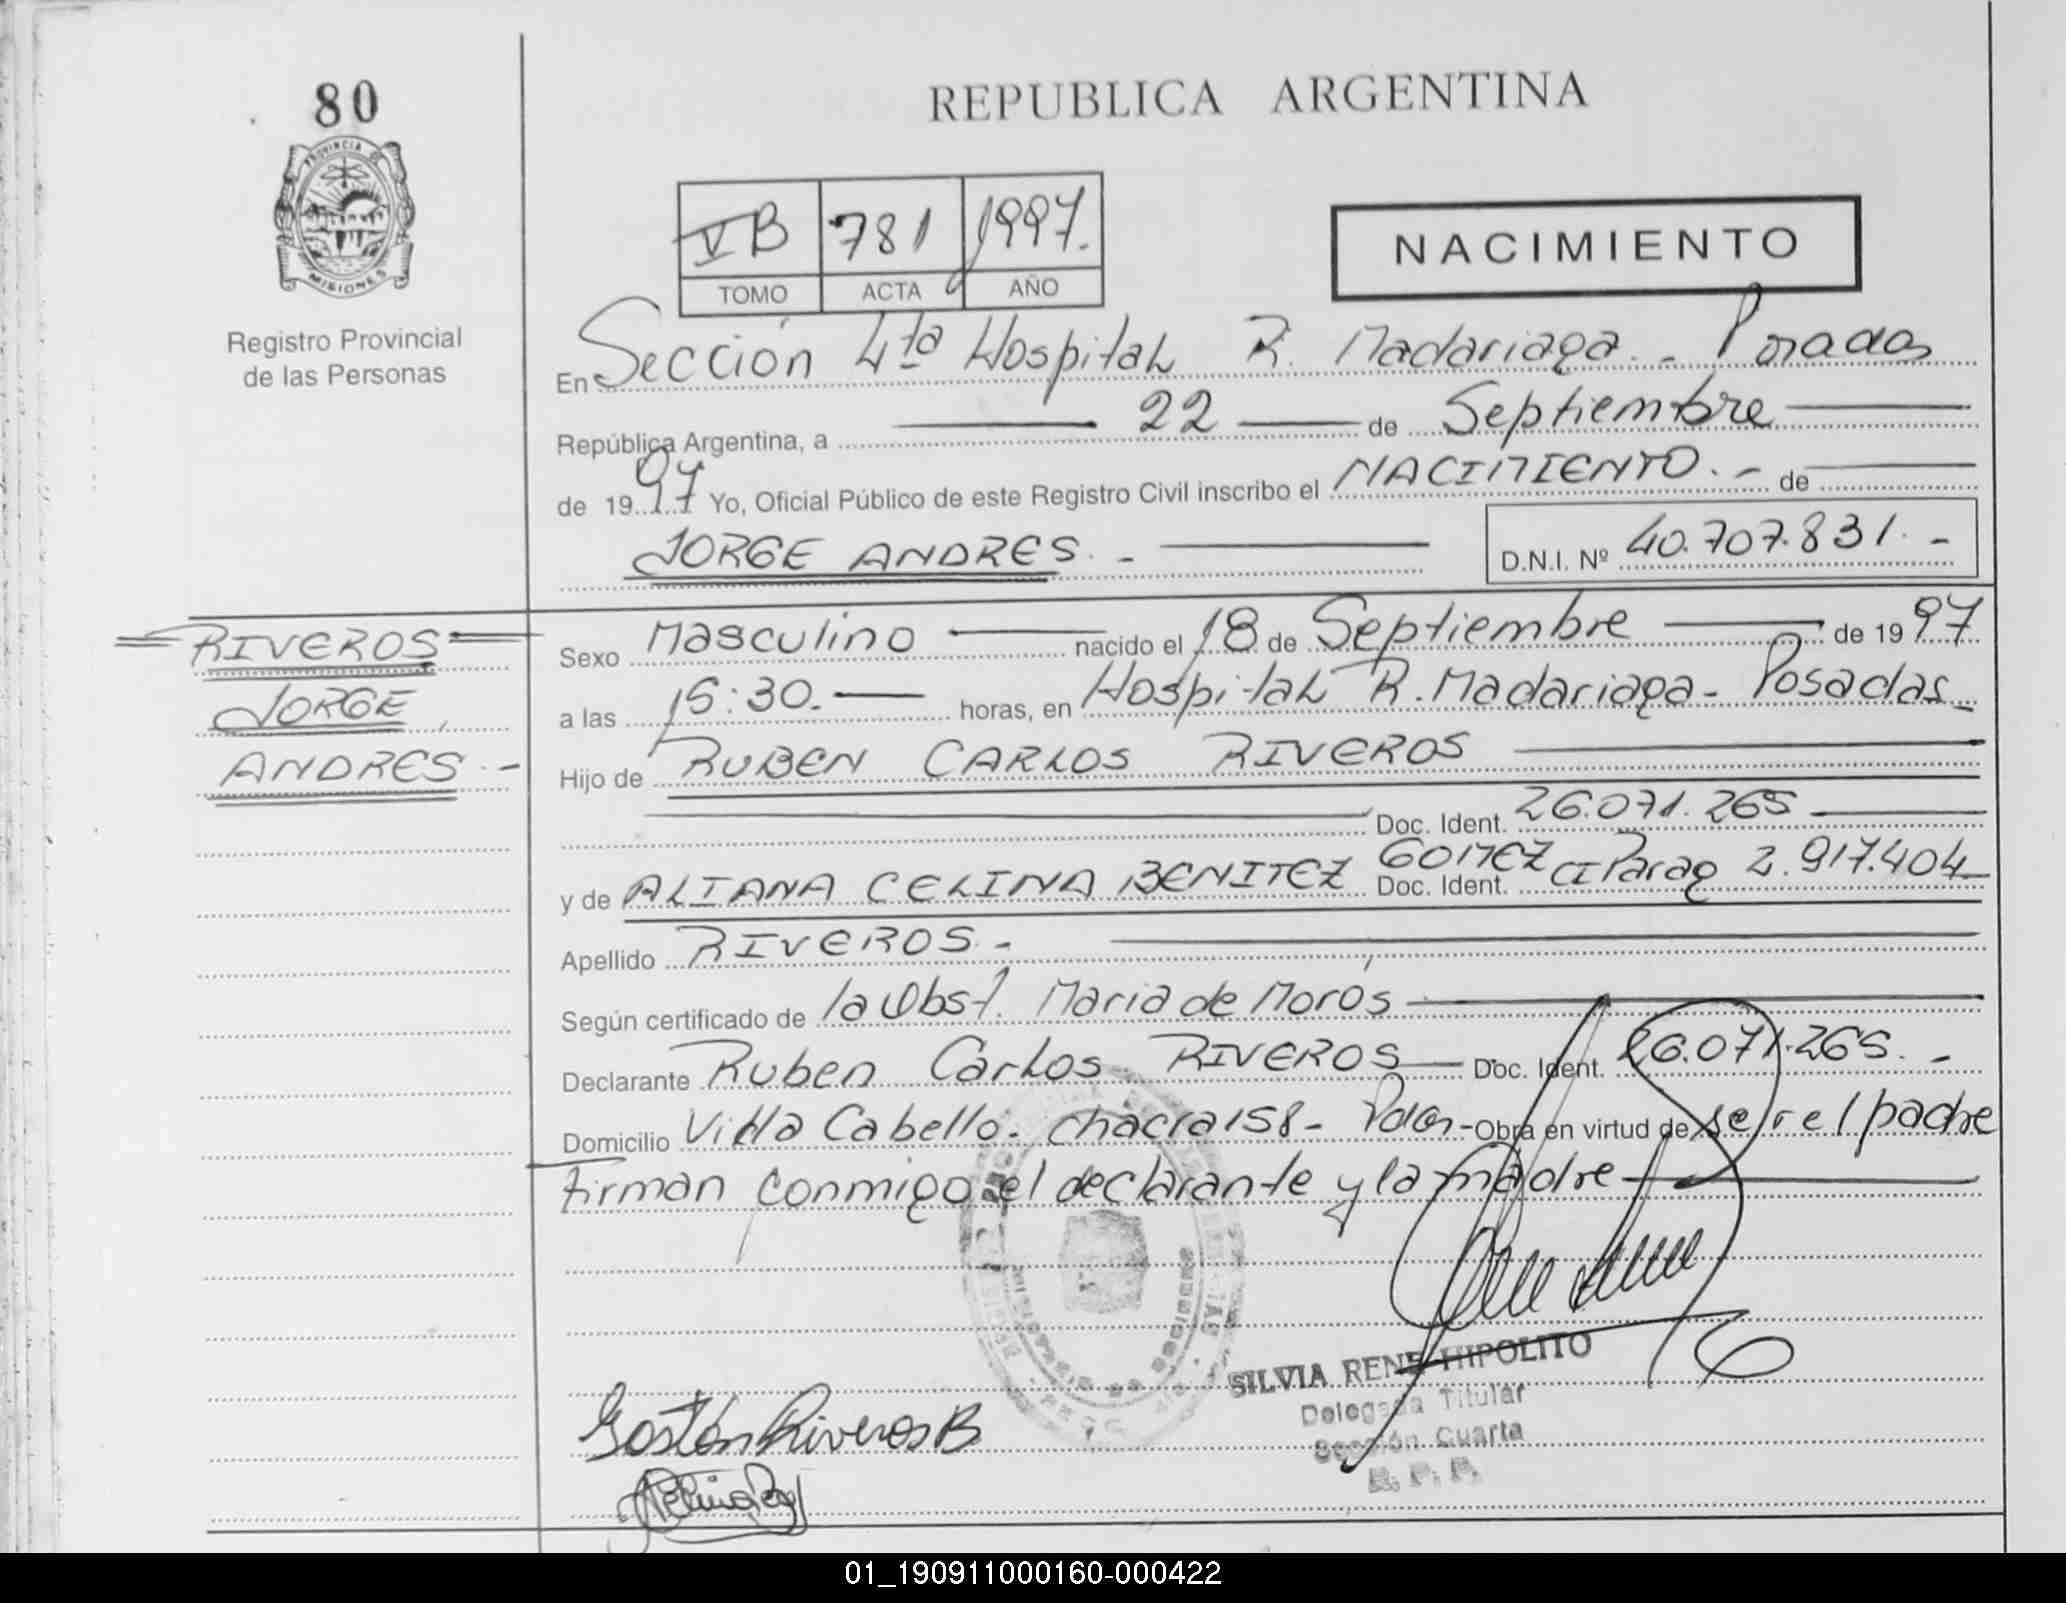 80
PROVINCIA DE
MISIONES
Registro Provincial
de las Personas
REPUBLICA ARGENTINA
VB 781 1997.
TOMO ACTA AÑO
NACIMIENTO
En Sección 4ta Hospital R. Madariaga. - Posadas
República Argentina, a 22 de Septiembre
de 1997 Yo, Oficial Público de este Registro Civil inscribo el NACIMIENTO. - de
JORGE ANDRES. -
D.N.I. Nº 40.707.831. -
RIVEROS
JORGE
ANDRES. -
Sexo Masculino nacido el 18 de Septiembre de 1997
a las 15:30. horas, en Hospital R. Madariaga - Posadas -
Hijo de RUBEN CARLOS RIVEROS
Doc. Ident. 26.071.265
y de ALIANA CELINA BENITEZ GOMEZ Doc. Ident. CI Parag 2.917.404
Apellido RIVEROS -
Según certificado de la Obst. Maria de Morós
Declarante Ruben Carlos RIVEROS Doc. Ident. 26.071.265. -
Domicilio Villa Cabello. chacra 158 - Pdas - Obra en virtud de ser el padre
Firman conmigo el declarante y la madre
SILVIA RENE HIPOLITO
Delegada Titular
Sección Cuarta
R. P. P.
Gastón Riveros B
01_190911000160-000422